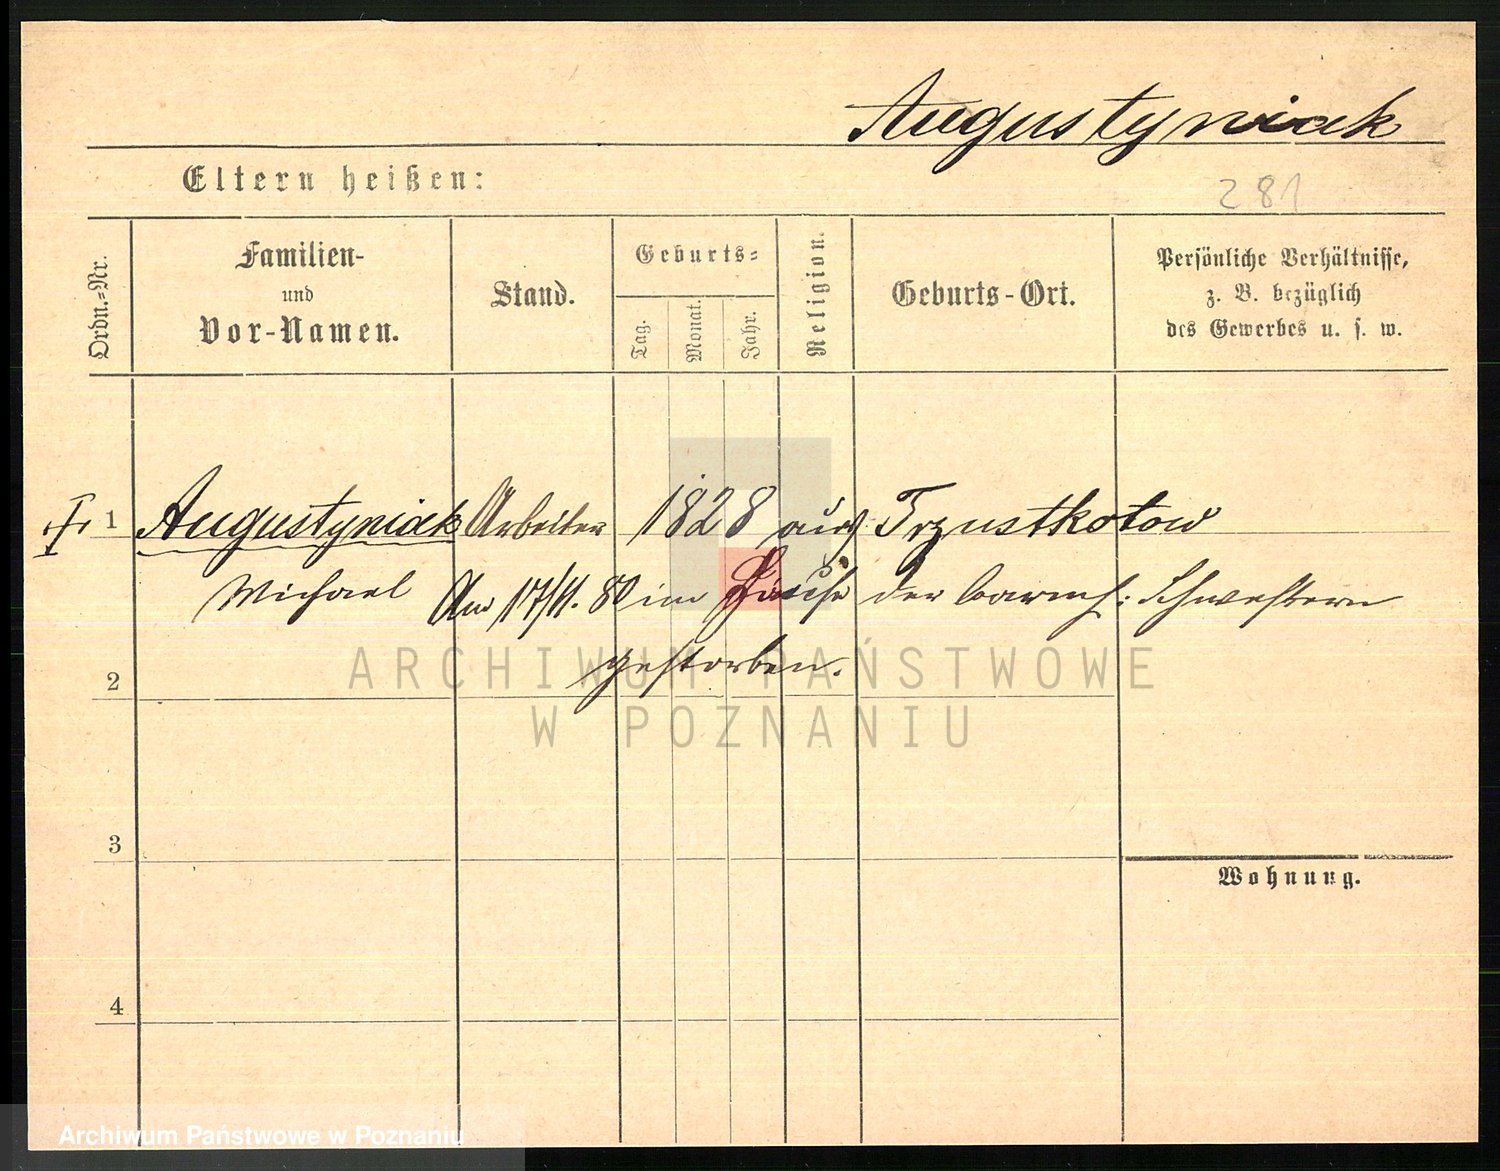 Augustyniak
Eltern heißen:
281
Ordn.=Nr.
Familien-
und
Vor-Namen.
Stand.
Geburts=
Tag.
Monat.
Jahr.
Religion.
Geburts-Ort.
Persönliche Verhältnisse,
z. B. bezüglich
des Gewerbes u. s. w.
1 Augustyniak Arbeiter 1828 aus Trzustkotow
Michael Am 17/11. 80 im Hause der barmh: Schwestern
gestorben.
2
ARCHIWUM PAŃSTWOWE
W POZNANIU
3
Wohnung.
4
Archiwum Państwowe w Poznaniu